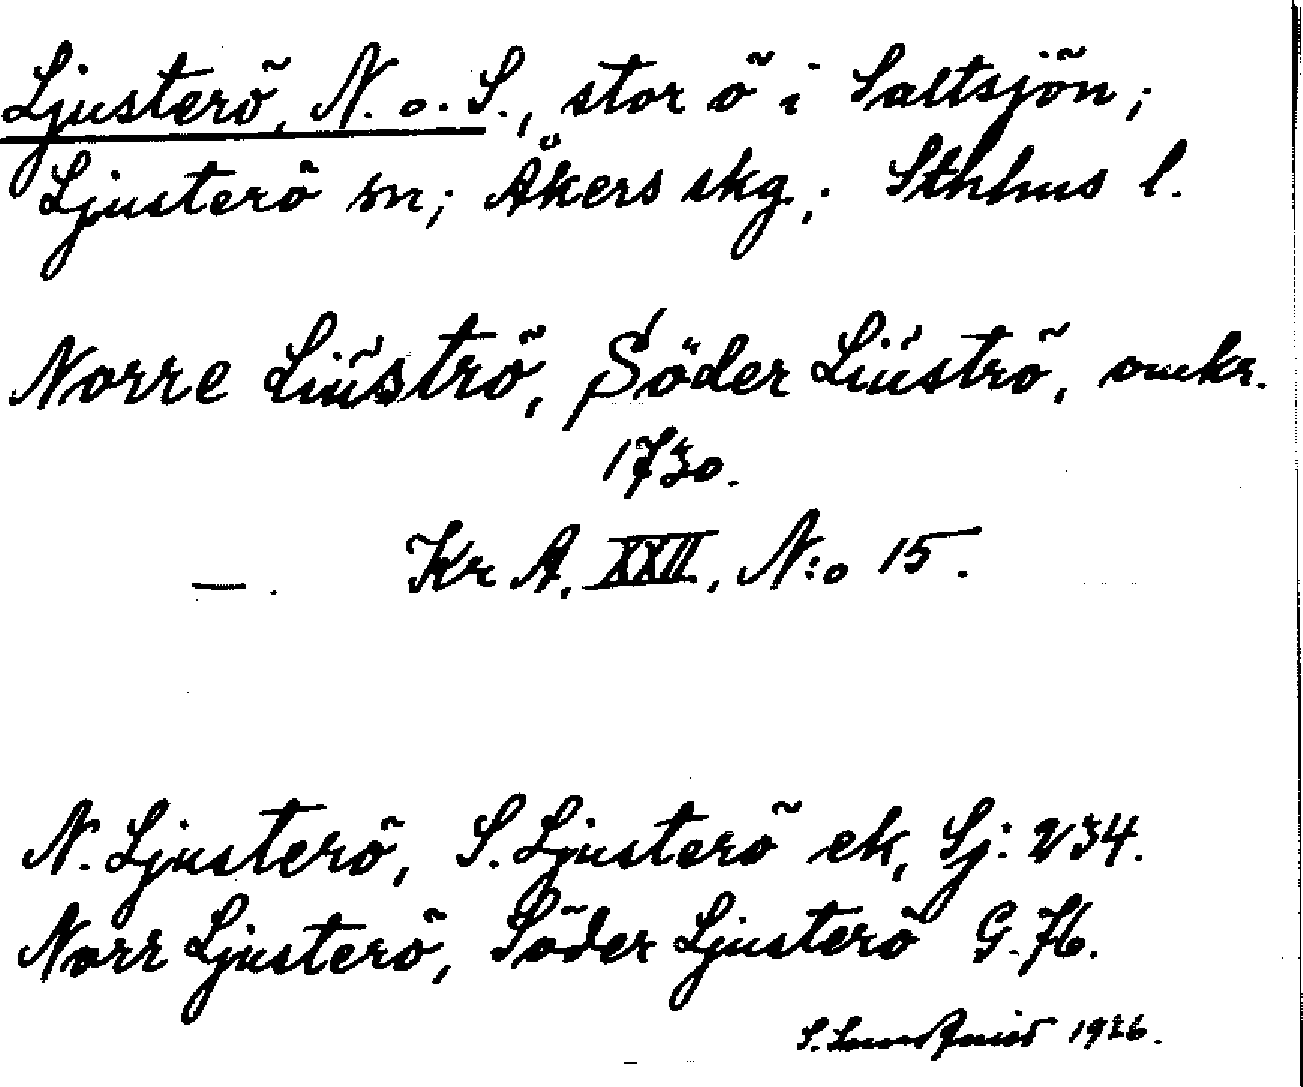 Ljusterö, N. o. S., stor ö i Saltsjön;
Ljusterö sn; Åkers skg.; Sthlms l.
Norre Liüströ, Söder Liüströ, omkr.
1730.
—. Kr A. XXII, N:o 15.
N. Ljusterö, S. Ljusterö ek, Sj: 234.
Norr Ljusterö, Söder Ljusterö G. 76.
S. 1926.